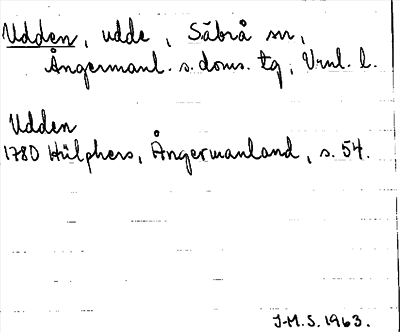 Udden, udde, Säbrå sn,
Ångermanl. s. doms. tg, Vnl. l.
Udden
1780 Hülphers, Ångermanland, s. 54.
J-M.S. 1963.